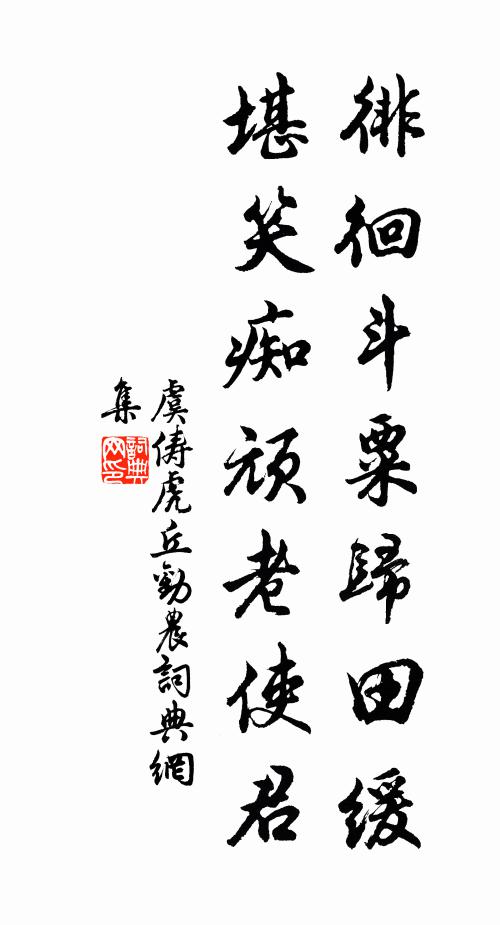 徘徊斗粟歸田緩
堪笑痴頑老使君
虞儔虎丘勸農詞典網
集
詞典
网印